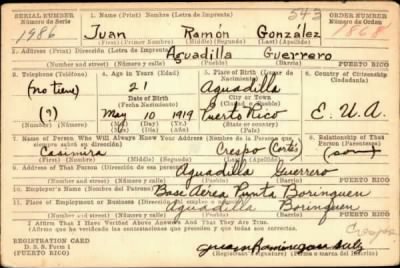 SERIAL NUMBER 1. Name (Print) Nombre (Letra de Imprenta) 543 ORDER NUMBER
Número de Serie Número de Orden
1986 Juan Ramón Gonzalez 1868
(First) (Primer Nombre) (Middle) (Segundo) (Last) (Apellido)
2. Address (Print) Dirección (Letra de Imprenta)
Aguadilla Guerrero
(Number and street) (Número y calle) (Town) (Pueblo) PUERTO RICO
3. Telephone (Teléfono) 4. Age in Years (Edad) 5. Place of Birth (Lugar de Nacimiento) 6. Country of Citizenship
Ciudadanía
(no tiene) 21 Aguadilla
Date of Birth City or Town
Fecha Nacimiento
(?) May 10 1919 Puerto Rico E. U. A.
(Mo.) (Day) (Yr.) State or country
(Mes) (Día) (Año) (Estado o país)
7. Name of Person Who Will Always Know Your Address (Nombre de la Persona que 8. Relationship of That
siempre sabrá su dirección) Person (Parentesco)
Casimira Crespo (Cortés)
(First) (Nombre) (Middle) (Segundo) (Last) (Apellido)
9. Address of That Person (Dirección de esa persona)
Aguadilla Guerrero
(Number and street) (Número y calle) (Town) (Pueblo) PUERTO RICO
10. Employer's Name (Nombre del Patrono)
Base Aerea Punta Borinquen
11. Place of Employment or Business (Dirección del empleo)
Aguadilla Borinquen
(Number and street) (Número y calle) (Town) (Pueblo) PUERTO RICO
I Affirm That I Have Verified Above Answers And That They Are True.
(Afirmo que he verificado las contestaciones que preceden y que son ciertas) Crespo
REGISTRATION CARD
D. S. S. Form 1
(PUERTO RICO) (Registrant's Signature) (Firma del Inscrito)